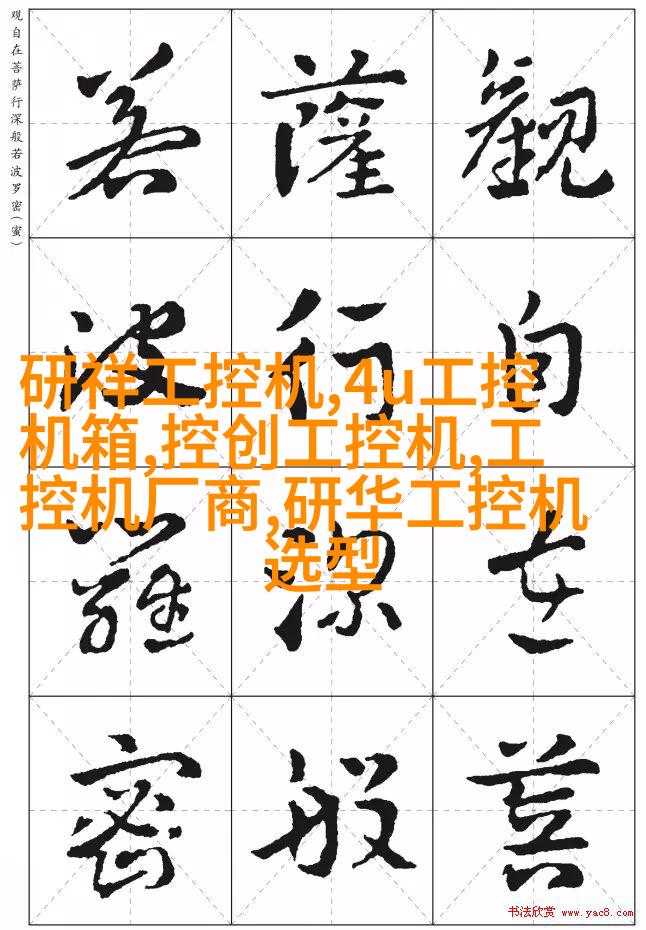 观自在菩萨行深般若波罗密(蜜)
觀自在菩
薩行深般
若波羅密
研祥工控机,4u工控
机箱,控创工控机,工
控机厂商,研华工控机
选型
书法欣赏 www.yac8.com